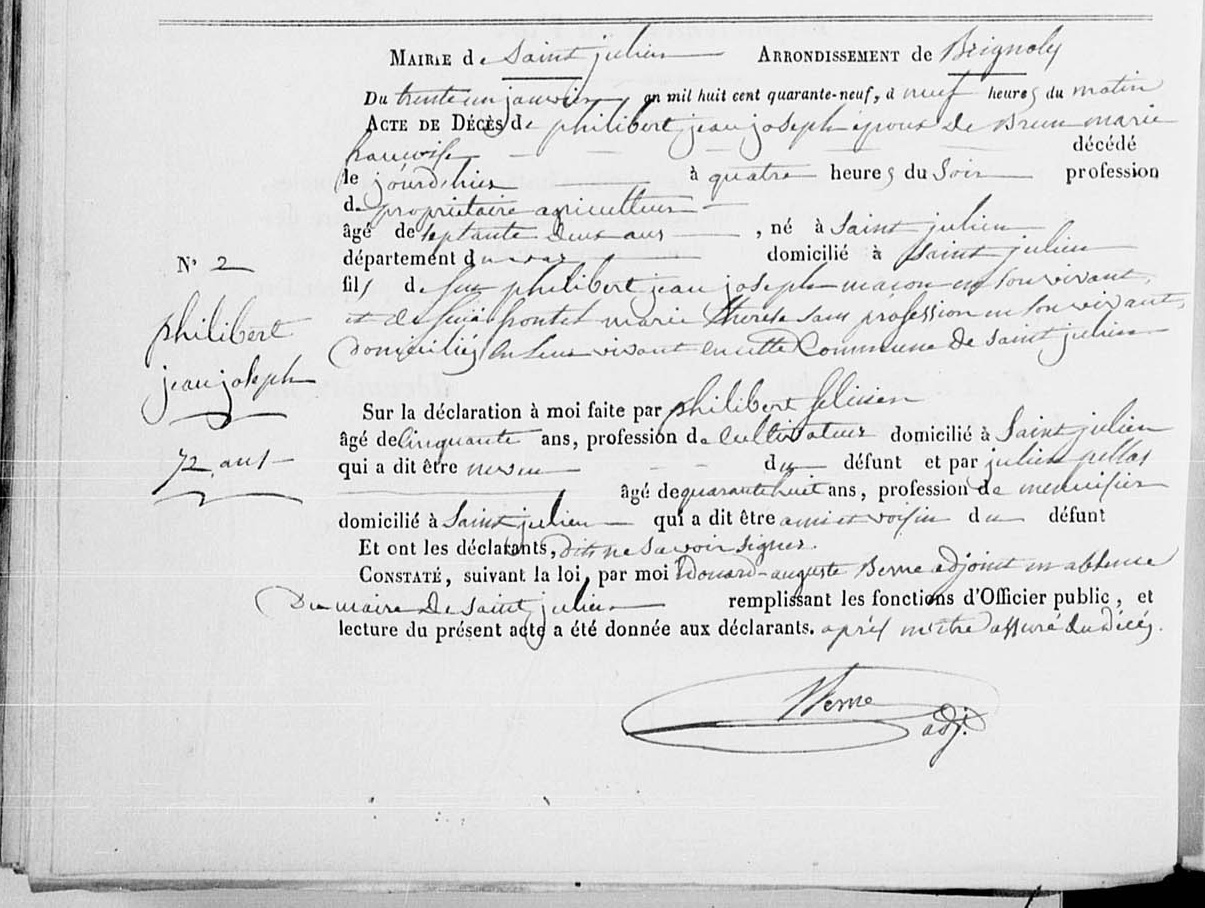 MAIRIE de Saint julien ARRONDISSEMENT de Brignoles
Du trente un janvier an mil huit cent quarante-neuf, à neuf heures du matin
ACTE DE DÉCÈS de philibert jean joseph époux de Brun marie
francoise décédé
le jourdhier à quatre heures du soir profession
de propriétaire agriculteur
âgé de septante deux ans, né à Saint julien
département du var domicilié à Saint julien
fils de feu philibert jean joseph maçon en son vivant,
et de feue marie therese sans profession en son vivant,
domiciliés en leur vivant en cette Commune de saint julien
N° 2
philibert
jean joseph
72 ans
Sur la déclaration à moi faite par philibert
âgé de cinquante ans, profession de cultivateur domicilié à Saint julien
qui a dit être neveu du défunt et par julien pellas
âgé de quarante huit ans, profession de menuisier
domicilié à Saint julien qui a dit être ami et voisin du défunt
Et ont les déclarants, dit ne savoir signer.
CONSTATÉ, suivant la loi, par moi Edouard-auguste Berne adjoint en absence
Du maire de Saint julien remplissant les fonctions d'Officier public, et
lecture du présent acte a été donnée aux déclarants. après m'être assuré du décès.
Berne
adj.